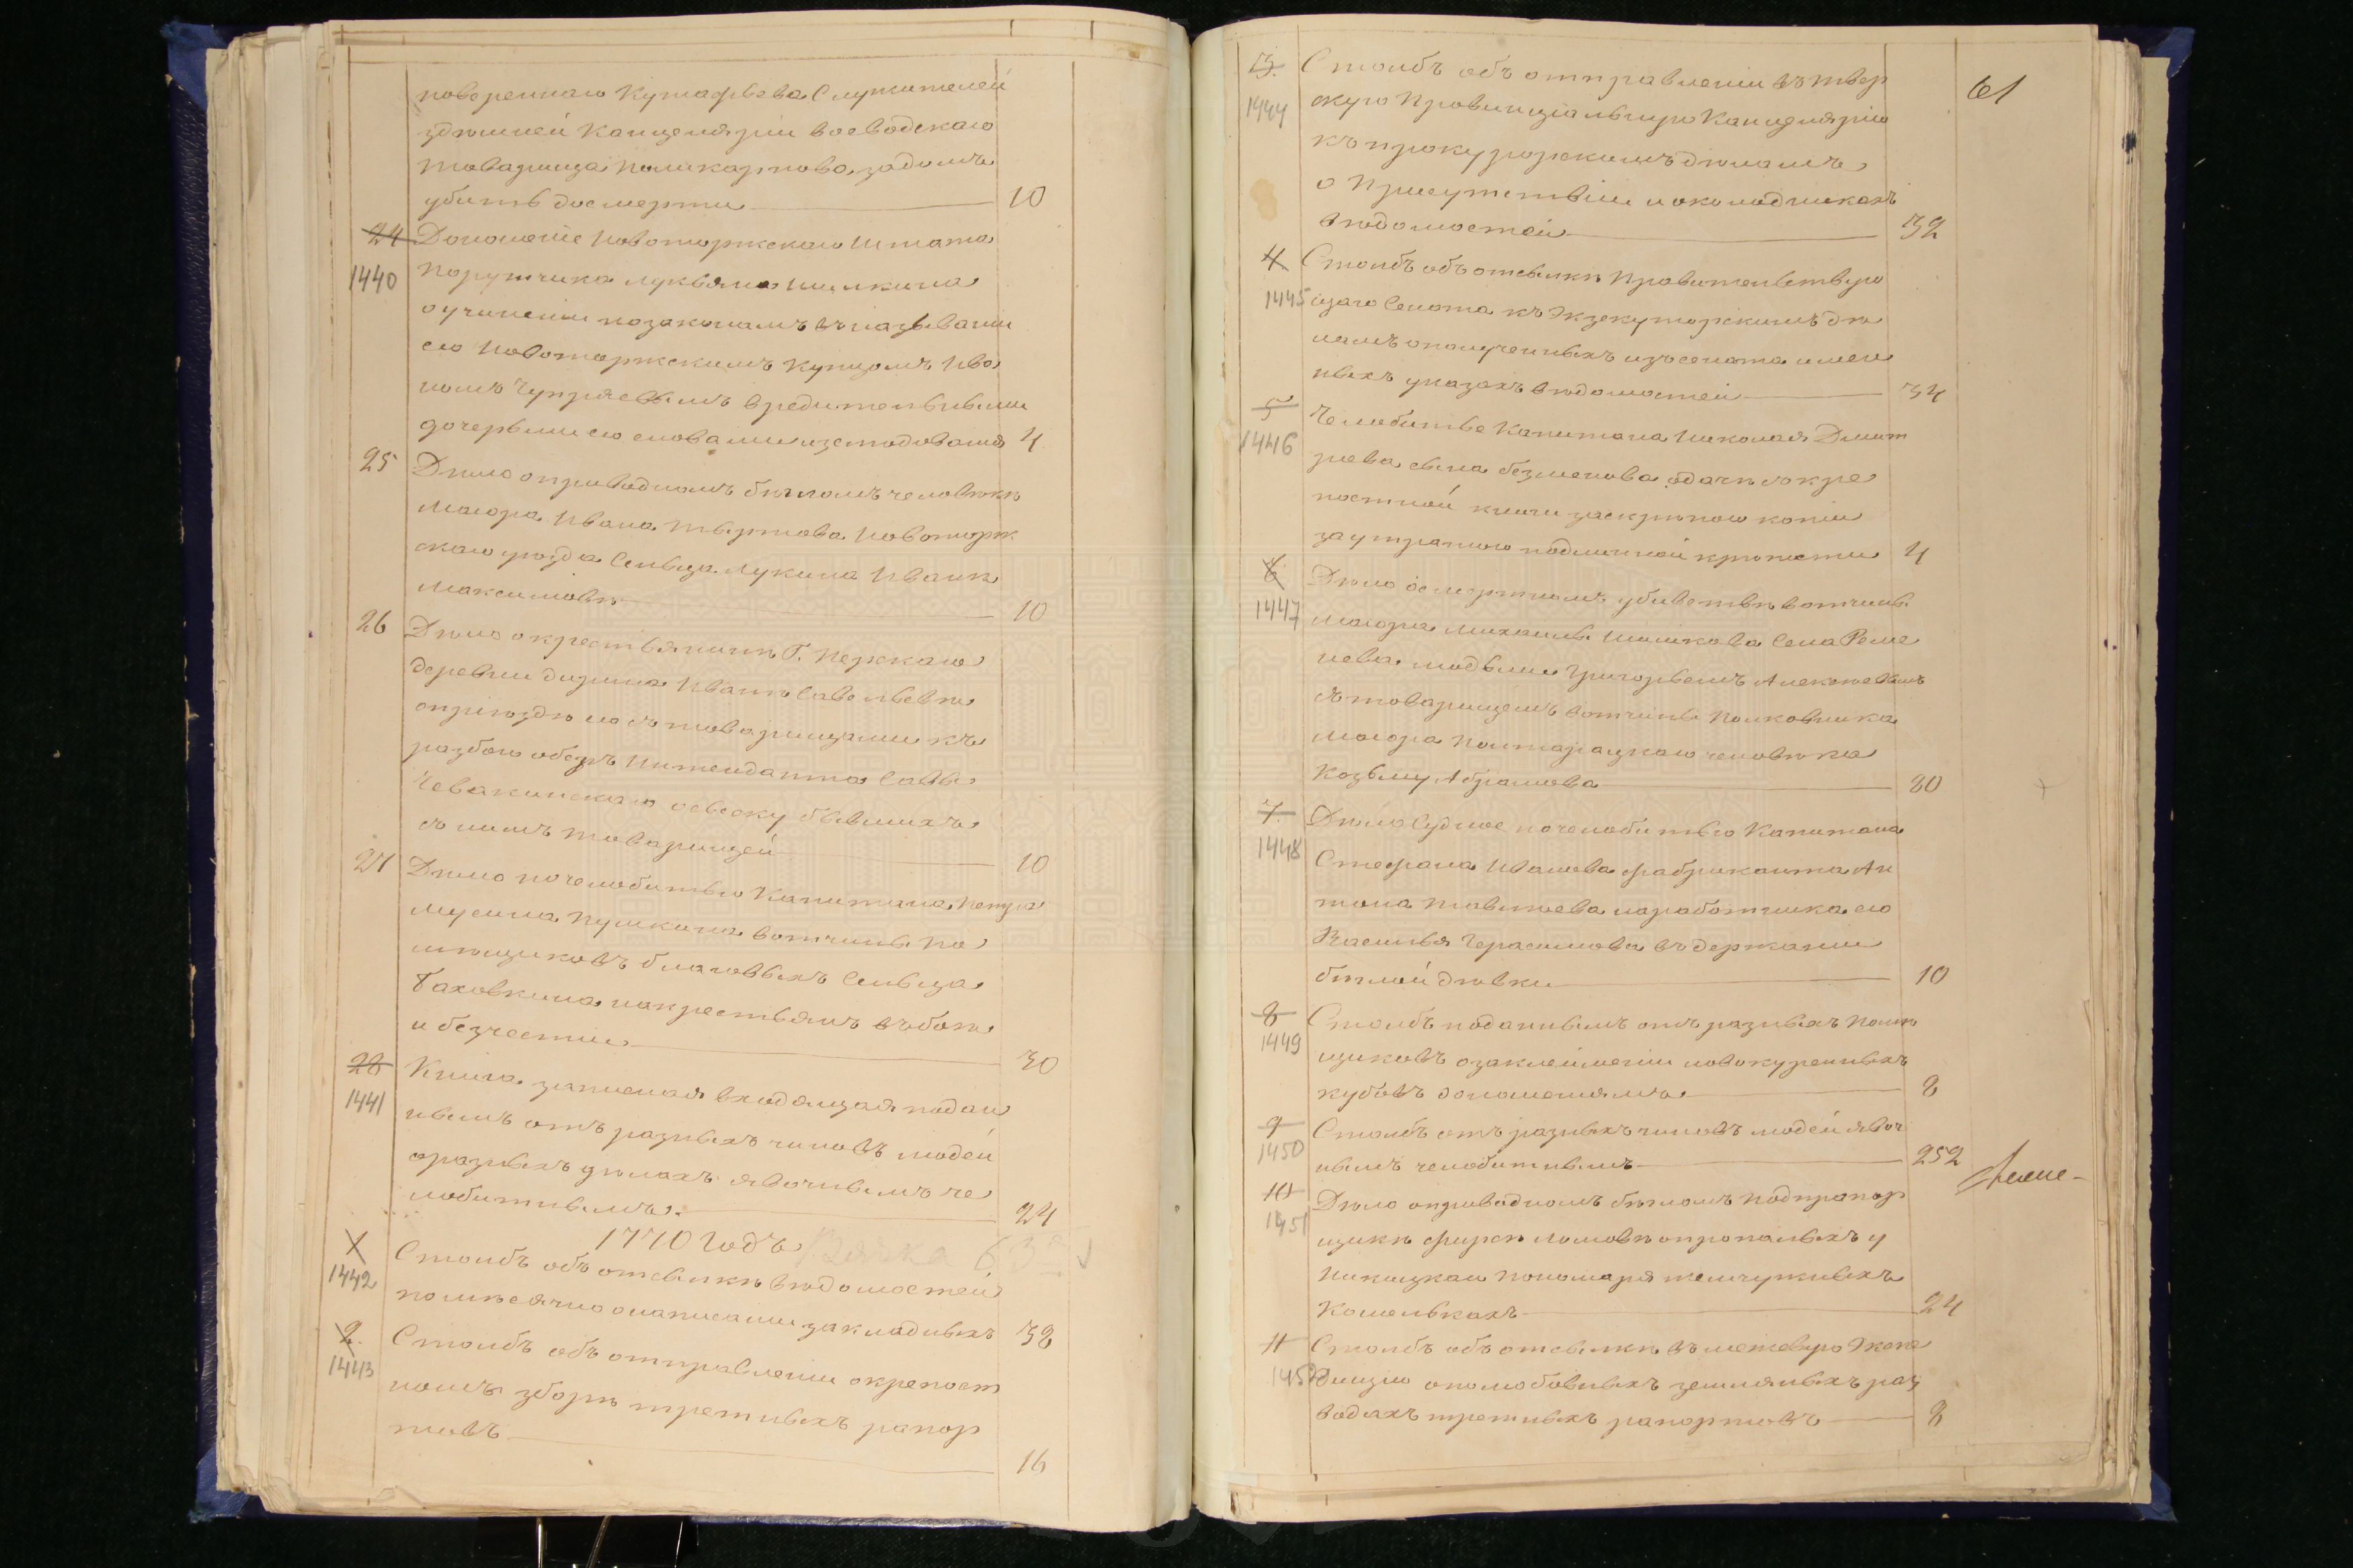 повереннаго Кутафьева Служителей
здешней Канцелярии воеводскаго
товарища Поликарпова задомъ
убить досмерти 10
24 Доношение Новоторжскаго Штата
1440 Порутчика Лукьяна Шилкина
о учинении позаконамъ въ назывании
ево Новоторжскимъ Купцомъ Ива
номъ Чупряевымъ вредительными
дочерьми ево словами изследования 4
25 Дѣло о приводномъ бѣгломъ человѣкѣ
Маіора Ивана Твертова Новоторж
скаго уѣзда Сельца Лукина Иванѣ
Максимовѣ 10
26 Дѣло о крестьянинѣ Г. Перскаго
деревни Дирина Иванѣ Савельевѣ
о приѣздѣ ево съ товарищами къ
разбою оберъ Интенданта Савы
Чевакинскаго осыску бывшихъ
съ нимъ товарищей 10
27 Дѣло по челобитью Капитана Петра
Мусина Пушкина вотчины По
мѣщиковъ Благовыхъ Сельца
Баховкина накрестьянъ въ боѣ
и безчестии 30
28 Книга записная входящая подан
1441 нымъ отъ разныхъ чиновъ людей
о разныхъ дѣлахъ явочнымъ че
лобитнымъ. 24
1770 Годъ
1 Столбъ объ отсылкѣ вѣдомостей
1442 помѣсячно о написании закладныхъ 38
2 Столбъ объ отправлении о крепост
1443 номъ зборѣ третныхъ рапор
товъ 16
61
3. Столбъ объ отправлении въ Твер
1444 скую Провинциальную Канцелярию
къ прокурорскимъ дѣламъ
о Присутствии и о колодникахъ
вѣдомостей 32
4 Столбъ объ отсылкѣ Правительствую
1445 щаго Сената къ Экзекуторскимъ дѣ
ламъ ополученныхъ изъ сената имен
ныхъ указахъ вѣдомостей 34
5 Челобитье Капитана Николая Дмит
1446 риева сына Безменова одачѣ съ кре
постной книги заскрѣпою копии
за утратою подлинной крѣпости 4
6 Дѣло о смертномъ убивствѣ вотчины
1447 Маіора Михаилы Шишкова Села Реме
нева людьми Григорьемъ Алексѣевымъ
съ товарищемъ вотчины Полковника
Маіора Полтарацкаго человѣка
Козьму Абрамова 80
7. Дѣло Судное по челобитью Капитана
1448 Стефана Ивашева фабриканта Ан
тона наработника ево
Василья Герасимова въ держании
бѣглой дѣвки 10
8 Столбъ поданнымъ отъ разныхъ Помѣ
1449 щиковъ о заклеймении новокуренныхъ
кубовъ доношениямъ 8
9 Столбъ отъ разныхъ чиновъ людей явоч
1450 нымъ челобитнымъ 252
10 Дѣло о приводномъ бѣгломъ Подпрапор
1451 щикѣ Фирсѣ Ломовѣ о пропалыхъ у
Никицкаго Пономаря жемчужныхъ
Кошелькахъ 24
11 Столбъ объ отсылкѣ въ межевую Экспе
1452 дицию о полюбовныхъ земляныхъ раз
водахъ третныхъ рапортовъ 8